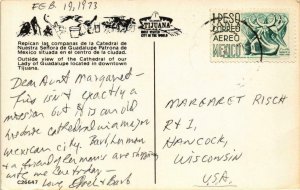 FEB. 19, 1973
TIJUANA
Repican las campanas de la Catedral de
Nuestra Señora de Guadalupe Patrona de
Mexico situada en el centro de la ciudad.
Outside view of the Cathedral of our
Lady of Guadalupe located in downtown
Tijuana.
Dear Aunt Margaret -
This isn't exactly a
mission but it is an old
cathedral in a major
mexican city. Barb, Herman
& a friend of Hermans are shopping
with me here today -
Love, & Barb
C26647
AEREO
MEXICO
MARGARET RISCH
Rt 1,
HANCOCK,
WISCONSIN
USA.